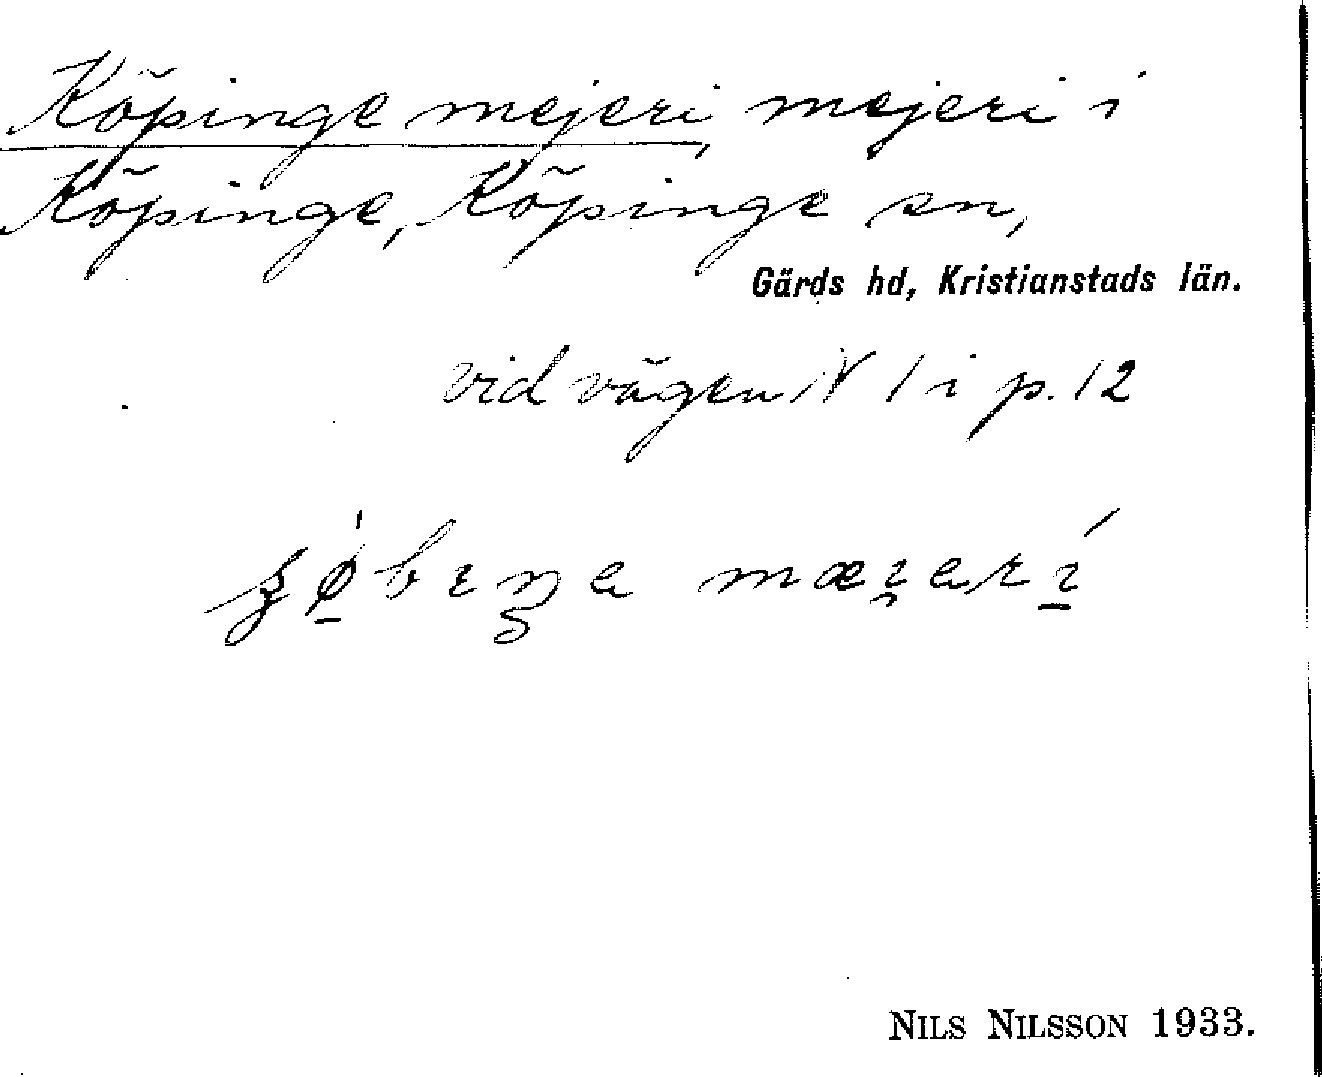 Köpinge mejeri, mejeri i
Köpinge, Köpinge sn,
Gärds hd, Kristianstads län.
vid vägen N 1 i p. 12
NILS NILSSON 1933.